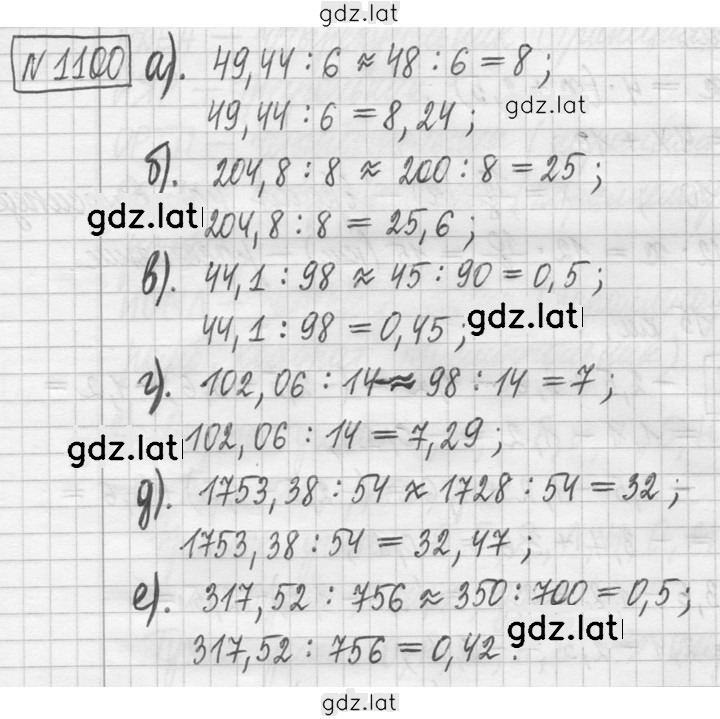 gdz.lat
N 1100 а). 49,44 : 6 ≈ 48 : 6 = 8 ;
gdz.lat
49,44 : 6 = 8,24 ;
б). 204,8 : 8 ≈ 200 : 8 = 25 ;
gdz.lat
204,8 : 8 = 25,6 ;
в). 44,1 : 98 ≈ 45 : 90 = 0,5 ;
44,1 : 98 = 0,45 ;
gdz.lat
г). 102,06 : 14 ≈ 98 : 14 = 7 ;
gdz.lat
102,06 : 14 = 7,29 ;
д). 1753,38 : 54 ≈ 1728 : 54 = 32 ;
1753,38 : 54 = 32,47 ;
е). 317,52 : 756 ≈ 350 : 700 = 0,5 ;
317,52 : 756 = 0,42 .
gdz.lat
gdz.lat